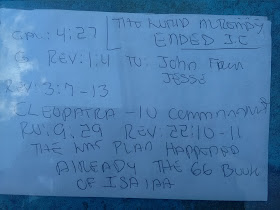 THE WORLD ALREADY
ENDED J.C
4:27
REV: 1:4 TO: John From
JESSE
REV: 3:7-13
CLEOPATRA -10 commandments
9:29 REV: 22:10-11
THE WAS PLAN HAPPENED
ALREADY THE 66 BOOK
OF ISAIAH